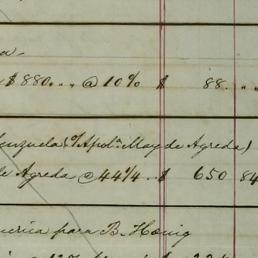 a.
$880.,. @ 10% $ 88. „ „
enzuela (% Apol.ª May de Agreda)
de Agreda @ 44¼ .. $ 650 84
merica para B. Honig